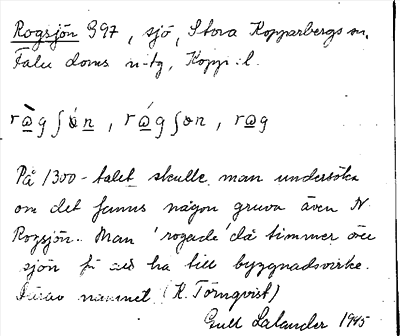 Rogsjön 997, sjö, Stora Kopparbergs sn,
Falu doms n-tg, Kopp:l.
På 1300-talet skulle man undersöka
om det fanns någon gruva även N.
Rogsjön. Man 'rogade' då timmer över
sjön för att ha till byggnadsvirke.
Därav namnet (K. Törnqvist)
Gull Lalander 1945